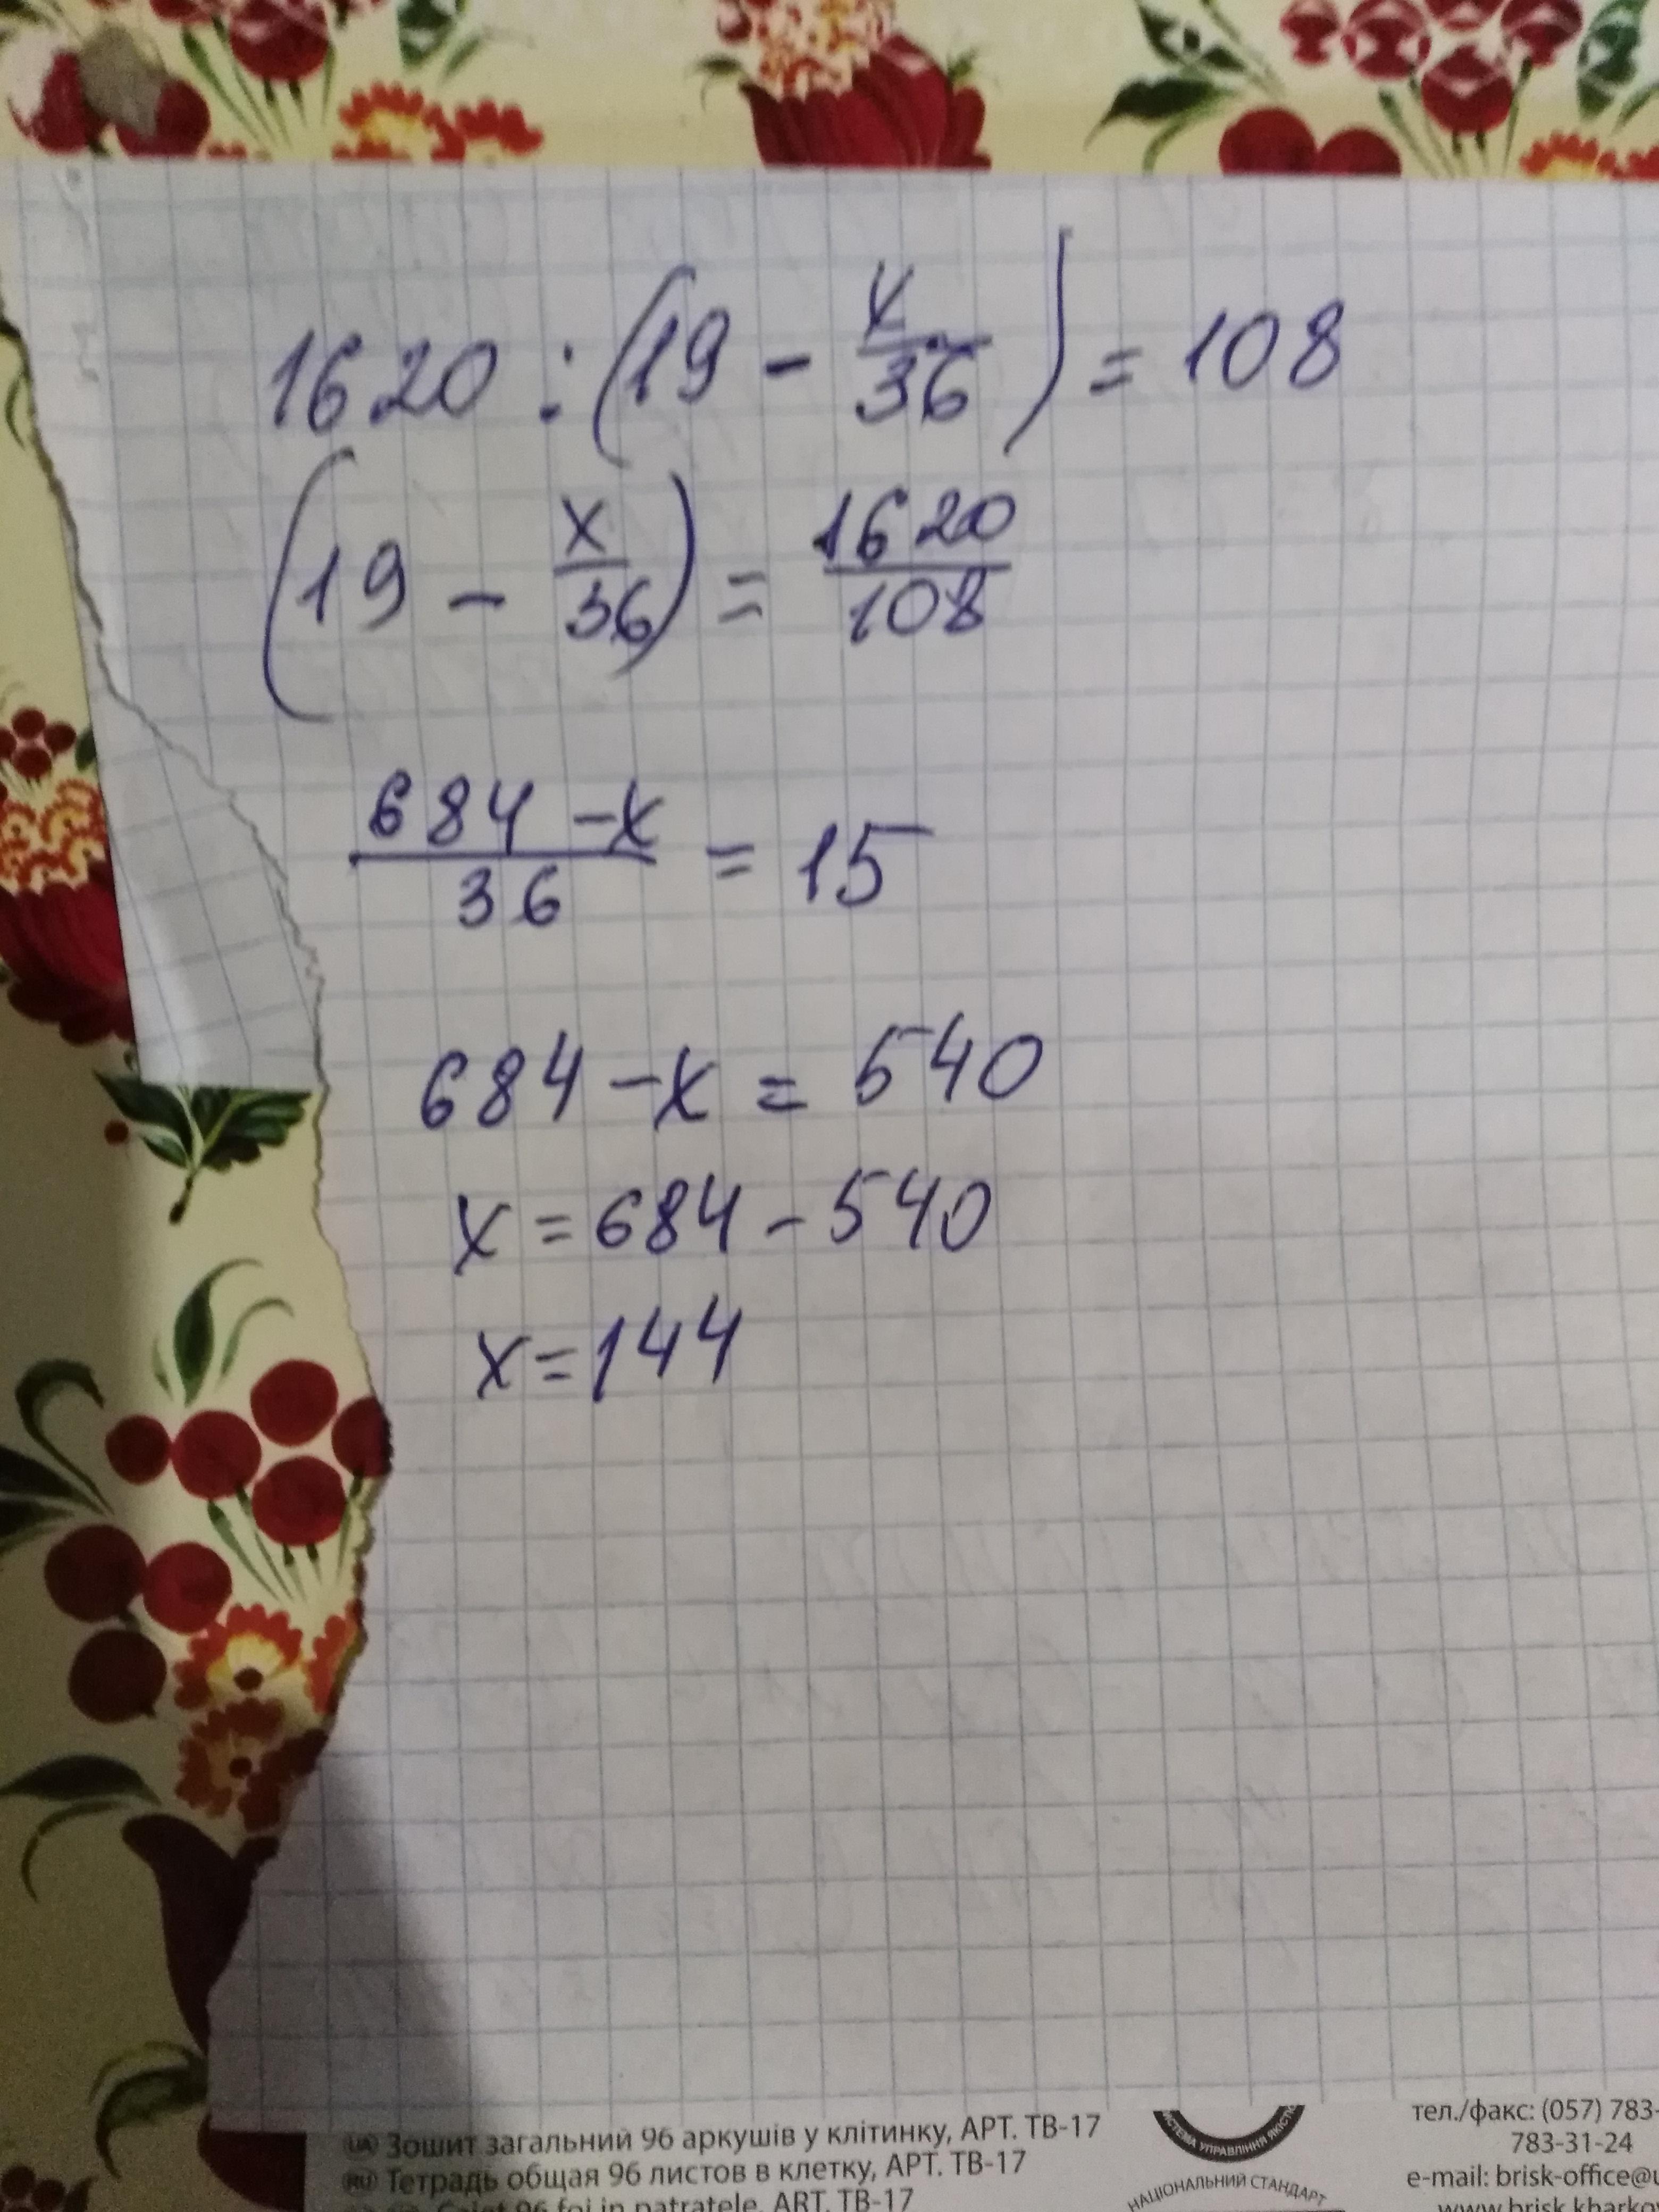 1620 : (19 - x/36) = 108
(19 - x/36) = 1620/108
684 - x/36 = 15
684 - x = 540
x = 684 - 540
x = 144
UA Зошит загальний 96 аркушів у клітинку, АРТ. ТВ-17
RU Тетрадь общая 96 листов в клетку, АРТ. ТВ-17
Caiet 96 foi in patratele, ART. TB-17
СИСТЕМА УПРАВЛІННЯ ЯКІСТЮ
НАЦІОНАЛЬНИЙ СТАНДАРТ
тел./факс: (057) 783-
783-31-24
e-mail: brisk-office@u
www.brisk.kharkov